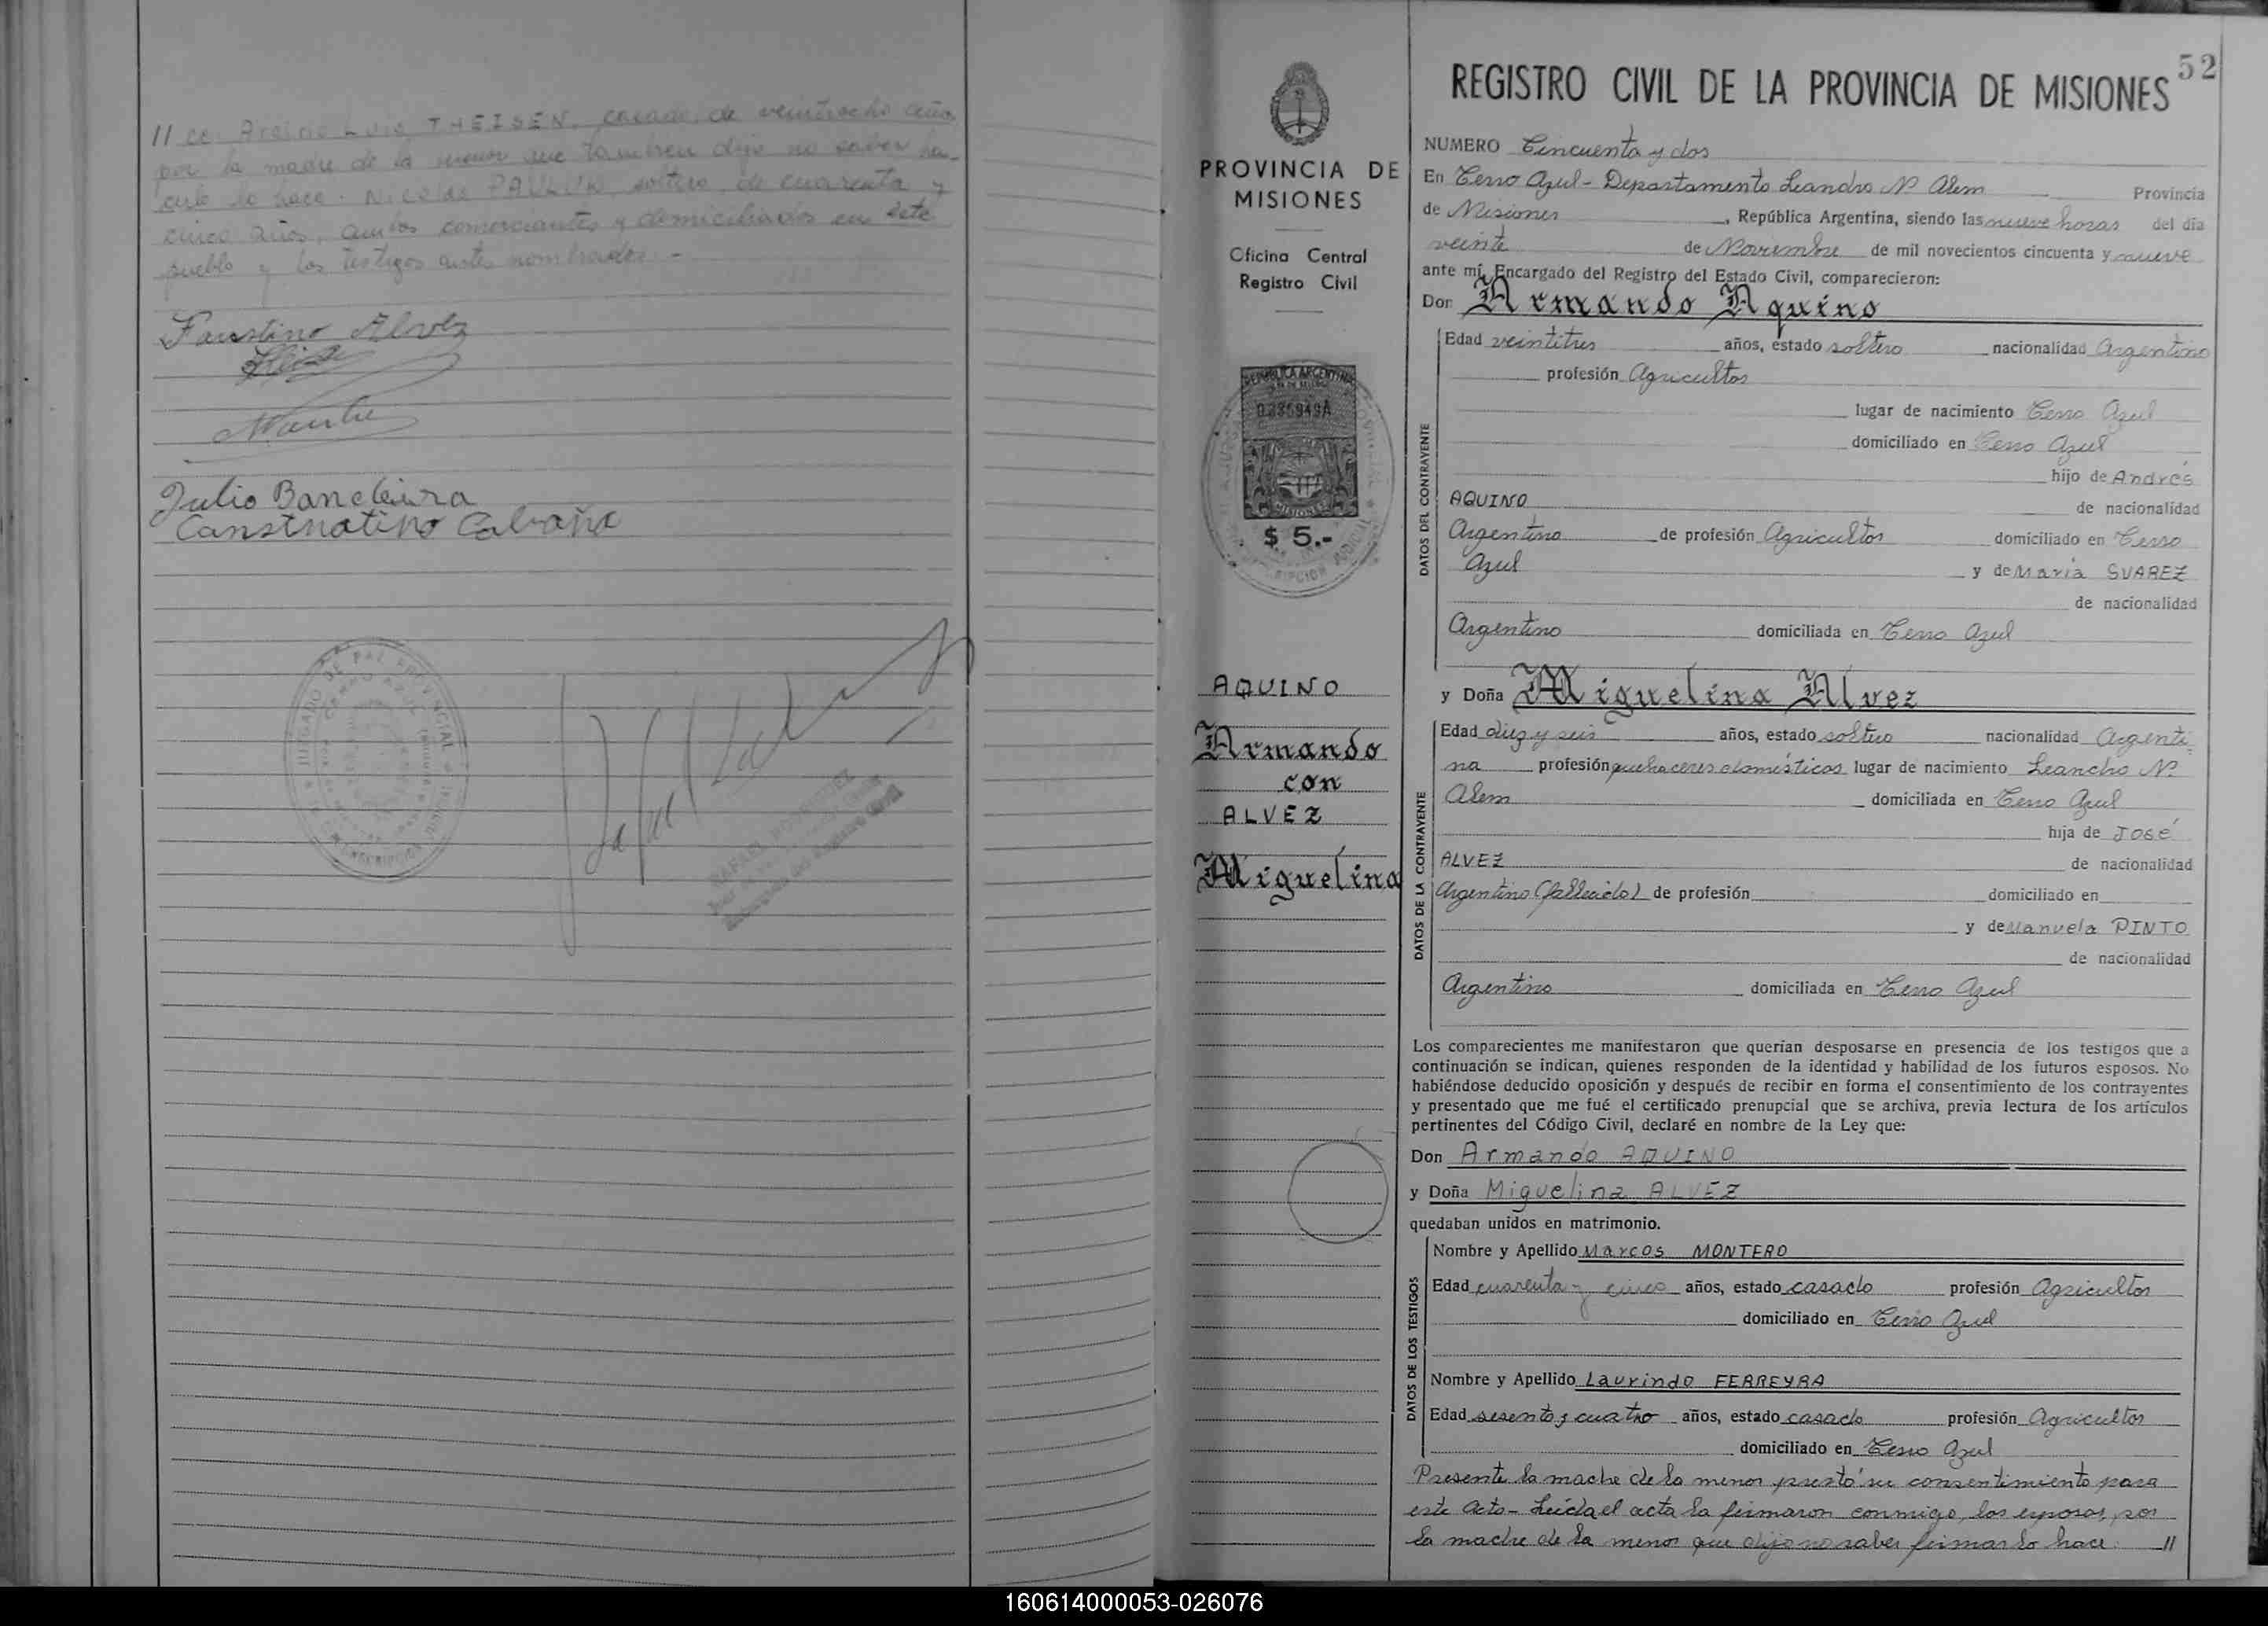 // ce: Avelino Luis THEISEN, casado, de veintiocho años
por la madre de la menor que tambien dijo no saber ha-
cerlo lo hace: Nicolás PAWLUK, soltero, de cuarenta y
cinco años, ambos comerciantes y domiciliados en éste
pueblo y los testigos antes nombrados.-
Faustino Alvez
Julio Bandeira
Canstnatino Cabaña
JUZGADO DE PAZ PROVINCIAL
CERRO AZUL
RAFAEL RODRIGUEZ
PROVINCIA DE
MISIONES
Oficina Central
Registro Civil
REPUBLICA ARGENTINA
0335949A
MISIONES
$ 5.-
AQUINO
Armando
con
ALVEZ
Miguelina
52
REGISTRO CIVIL DE LA PROVINCIA DE MISIONES
NUMERO Cincuenta y dos
En Cerro Azul - Departamento Leandro N. Alem Provincia
de Misiones, República Argentina, siendo las nueve horas del día
veinte de Noviembre de mil novecientos cincuenta y nueve
ante mí, Encargado del Registro del Estado Civil, comparecieron:
Don Armando Aquino
DATOS DEL CONTRAYENTE
Edad veintitres años, estado soltero nacionalidad Argentino
profesión Agricultor
lugar de nacimiento Cerro Azul
domiciliado en Cerro Azul
hijo de Andrés
AQUINO de nacionalidad
Argentino de profesión Agricultor domiciliado en Cerro
Azul y de María SUAREZ
de nacionalidad
Argentino domiciliada en Cerro Azul
y Doña Miguelina Alvez
DATOS DE LA CONTRAYENTE
Edad diez y seis años, estado soltero nacionalidad Argenti-
na profesión quehaceres domésticos lugar de nacimiento Leandro N.
Alem domiciliada en Cerro Azul
hija de José
ALVEZ de nacionalidad
Argentino (fallecido) de profesión domiciliado en
y de Manuela PINTO
de nacionalidad
Argentino domiciliada en Cerro Azul
Los comparecientes me manifestaron que querían desposarse en presencia de los testigos que a
continuación se indican, quienes responden de la identidad y habilidad de los futuros esposos. No
habiéndose deducido oposición y después de recibir en forma el consentimiento de los contrayentes
y presentado que me fué el certificado prenupcial que se archiva, previa lectura de los artículos
pertinentes del Código Civil, declaré en nombre de la Ley que:
Don Armando AQUINO
y Doña Miguelina ALVEZ
quedaban unidos en matrimonio.
DATOS DE LOS TESTIGOS
Nombre y Apellido Marcos MONTERO
Edad cuarenta y cinco años, estado casado profesión Agricultor
domiciliado en Cerro Azul
Nombre y Apellido Laurindo FERREYRA
Edad sesenta y cuatro años, estado casado profesión Agricultor
domiciliado en Cerro Azul
Presente la madre de la menor prestó su consentimiento para
este acto - Leída el acta la firmaron conmigo, los esposos, por
la madre de la menor que dijo no saber firmar lo hace: //
160614000053-026076